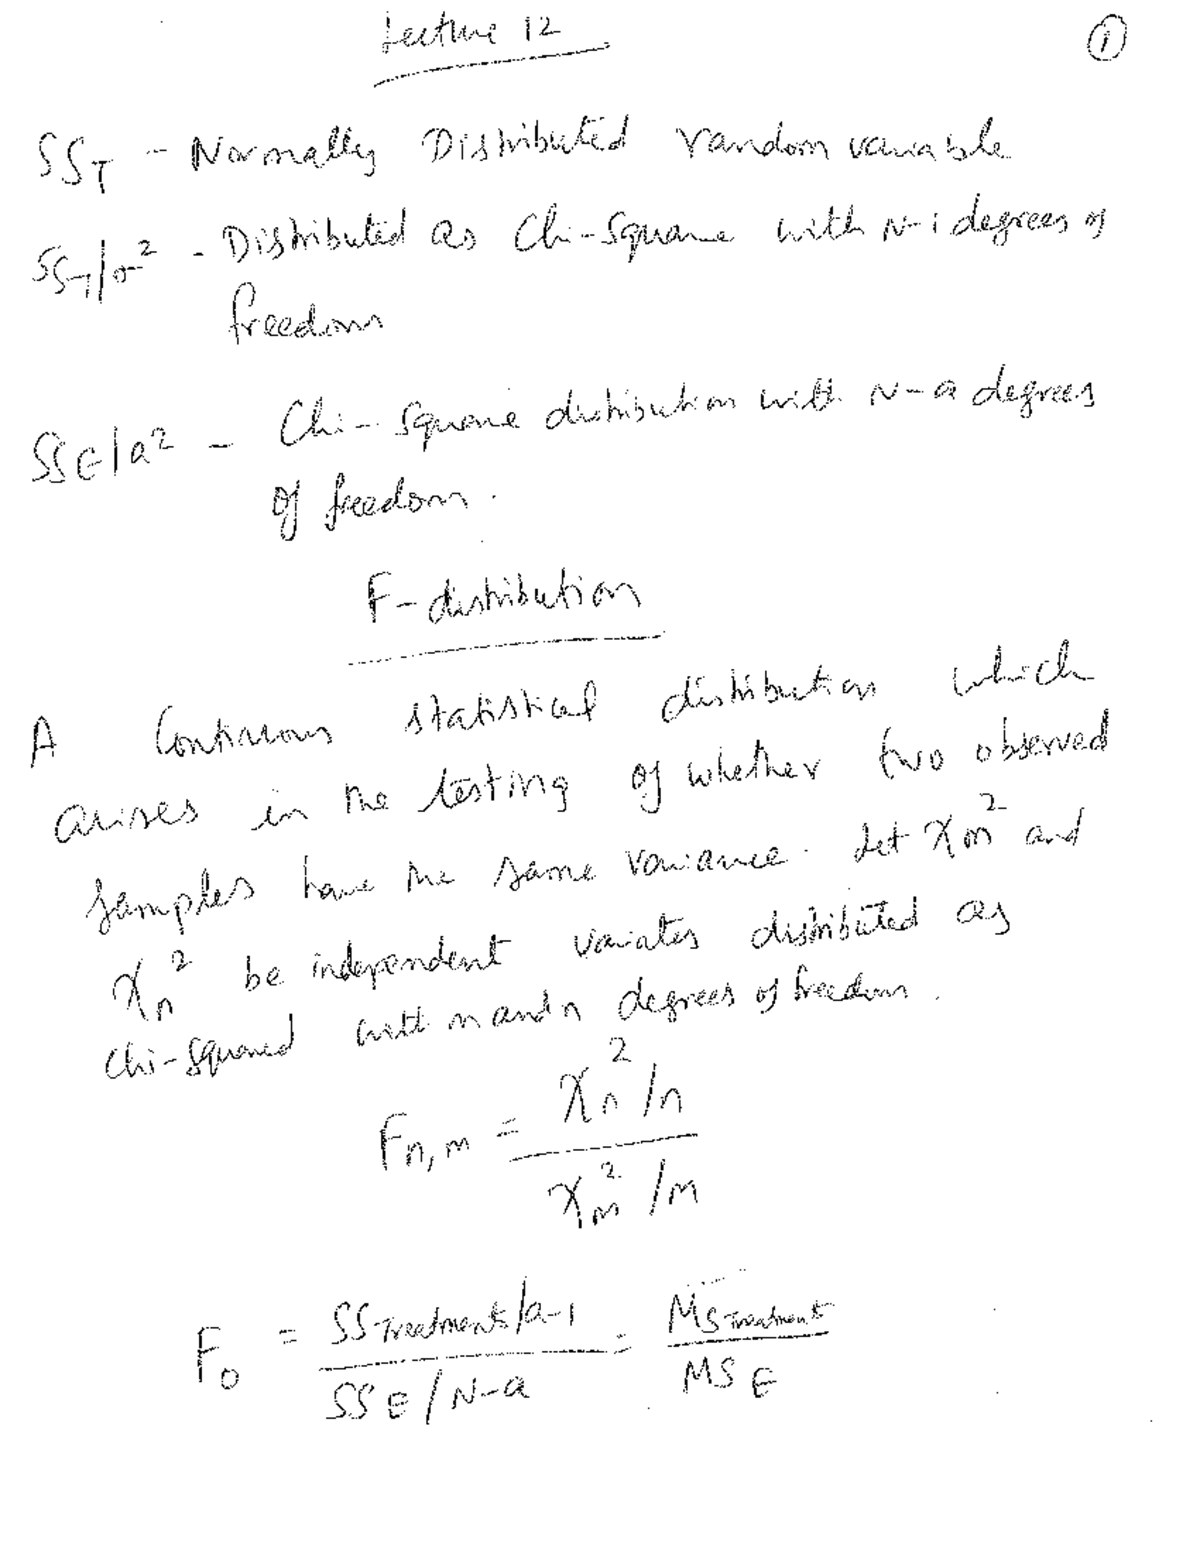 Lecture 12
①
SS_T - Normally Distributed random variable
SS_T/σ² - Distributed as Chi-Square with N-1 degrees of
freedom
SS_E/a² - Chi-Square distribution with N-a degrees
of freedom.
F-distribution
A Continuous statistical distribution which
arises in the testing of whether two observed
samples have the same variance. Let χ_m² and
χ_n² be independent variates distributed as
Chi-Squared with m and n degrees of freedom.
F_n,m = (χ_n²/n) / (χ_m²/m)
F_0 = (SS_Treatments/a-1) / (SS_E/N-a) = MS_Treatments / MS_E